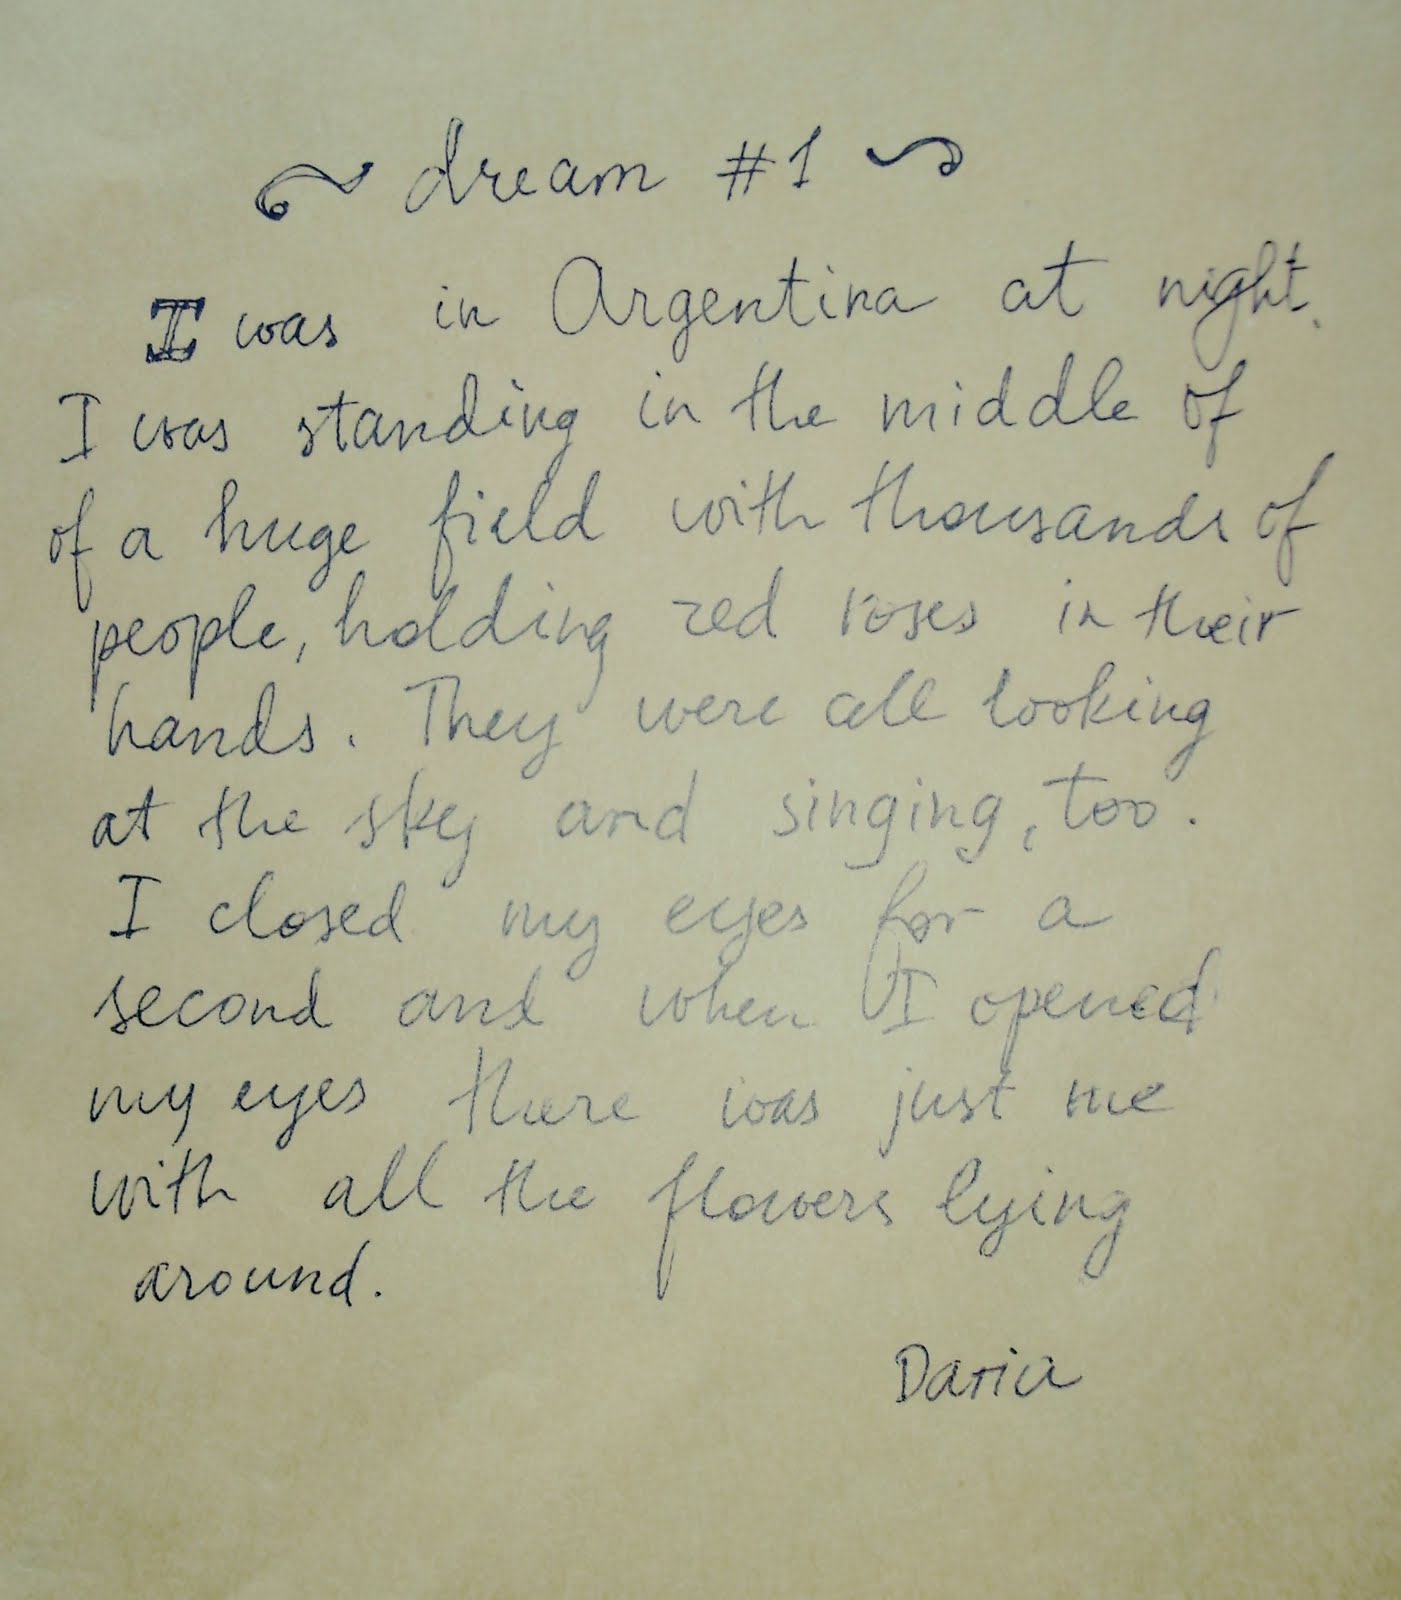 dream #1
I was in Argentina at night.
I was standing in the middle of
of a huge field with thousands of
people, holding red roses in their
hands. They were all looking
at the sky and singing, too.
I closed my eyes for a
second and when I opened
my eyes there was just me
with all the flowers lying
around.
Daria